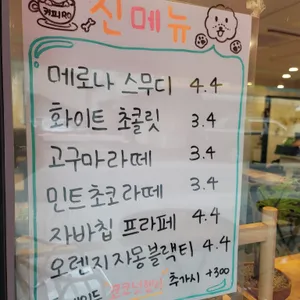 신메뉴
메로나 스무디 4.4
화이트 초콜릿 3.4
고구마라떼 3.4
민트초코라떼 3.4
자바칩 프라페 4.4
오렌지자몽블랙티 4.4
추가시 +300